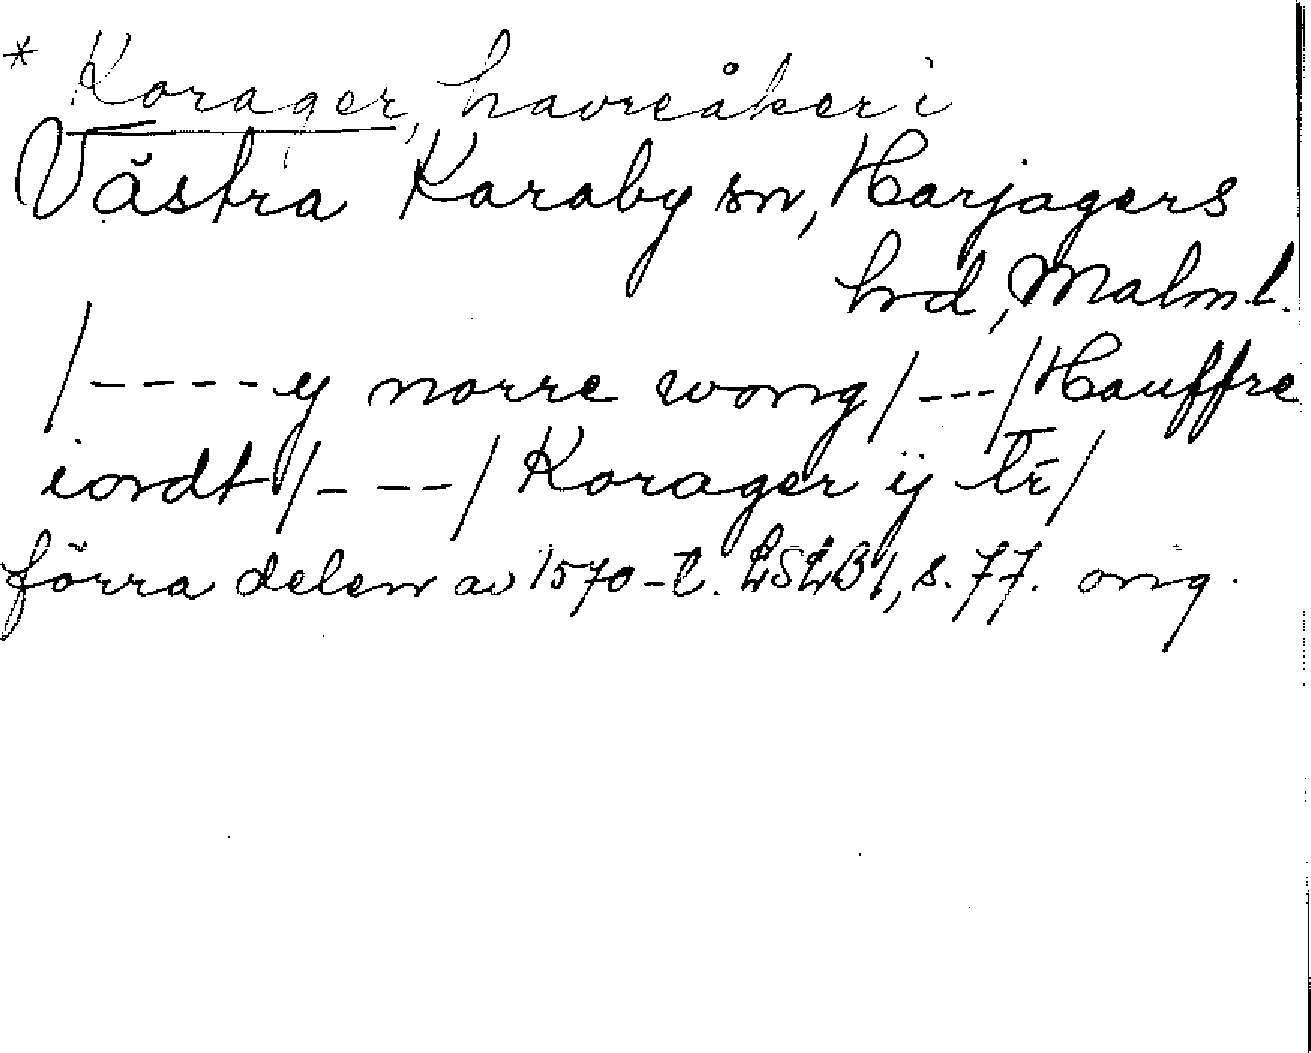 * Korager, havreåker i
Västra Karaby sn, Harjagers
hrd, Malm.l.
/----y norre wong/---/Hauffre
iordt/---/Korager ij tr̄/
förra delen av 1570-t. LSLB1, s. 77. orig.